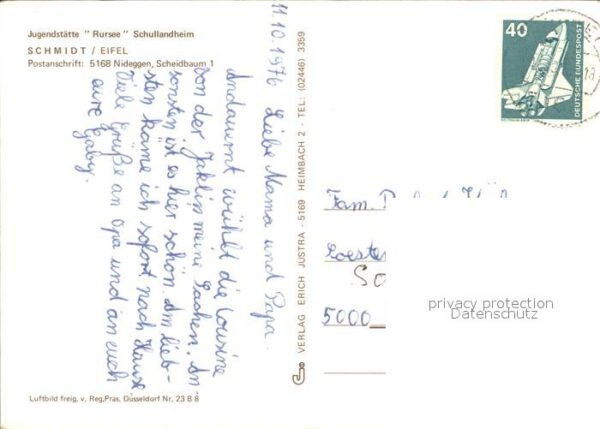 Jugendstätte "Rursee" Schullandheim
SCHMIDT / EIFEL
Postanschrift: 5168 Nideggen, Scheidbaum 1
11.10.1976
Liebe Mama und Papa.
Andauernt wühlt die Cousine
von der Jaklin meine Sachen. An-
sonsten ist es hier schön. Am lieb-
sten käme ich sofort nach Hause
Viele Grüße an Opa und an euch
eure Gaby.
Luftbild freig. v. Reg.Präs. Düsseldorf Nr. 23 B 8
VERLAG ERICH JUSTRA - 5169 HEIMBACH 2 - TEL: (02446) 3359
40
DEUTSCHE BUNDESPOST
Fam.
5000
privacy protection
Datenschutz